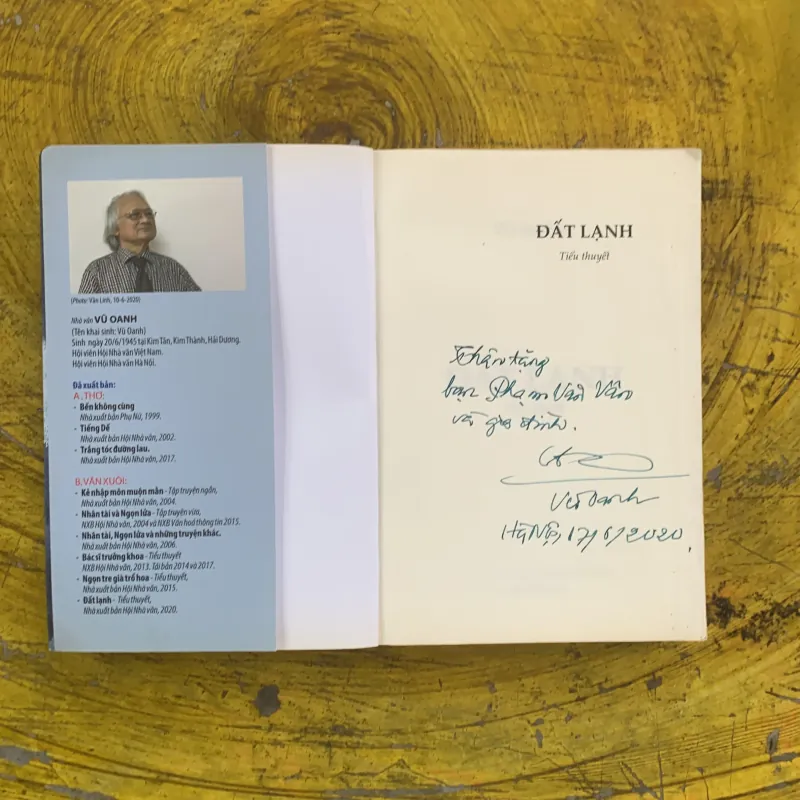 (Photo: Văn Linh, 10-6-2020)
Nhà văn VŨ OANH
(Tên khai sinh: Vũ Oanh)
Sinh ngày 20/6/1945 tại Kim Tân, Kim Thành, Hải Dương.
Hội viên Hội Nhà văn Việt Nam.
Hội viên Hội Nhà văn Hà Nội.
Đã xuất bản:
A. THƠ:
- Bến không cùng
Nhà xuất bản Phụ Nữ, 1999.
- Tiếng Dế
Nhà xuất bản Hội Nhà văn, 2002.
- Trắng tóc đường lau.
Nhà xuất bản Hội Nhà văn, 2017.
B. VĂN XUÔI:
- Kẻ nhập môn muộn mằn - Tập truyện ngắn,
Nhà xuất bản Hội Nhà văn, 2004.
- Nhân tài và Ngọn lửa - Tập truyện vừa,
NXB Hội Nhà văn, 2004 và NXB Văn hoá thông tin 2015.
- Nhân tài, Ngọn lửa và những truyện khác.
Nhà xuất bản Hội Nhà văn, 2006.
- Bác sĩ trưởng khoa - Tiểu thuyết
NXB Hội Nhà văn, 2013. Tái bản 2014 và 2017.
- Ngọn tre già trổ hoa - Tiểu thuyết,
Nhà xuất bản Hội Nhà văn, 2015.
- Đất lạnh - Tiểu thuyết,
Nhà xuất bản Hội Nhà văn, 2020.
ĐẤT LẠNH
Tiểu thuyết
Thân tặng
bạn Phạm Văn Vân
và gia đình.
Vũ Oanh
Hà Nội, 17/6/2020.